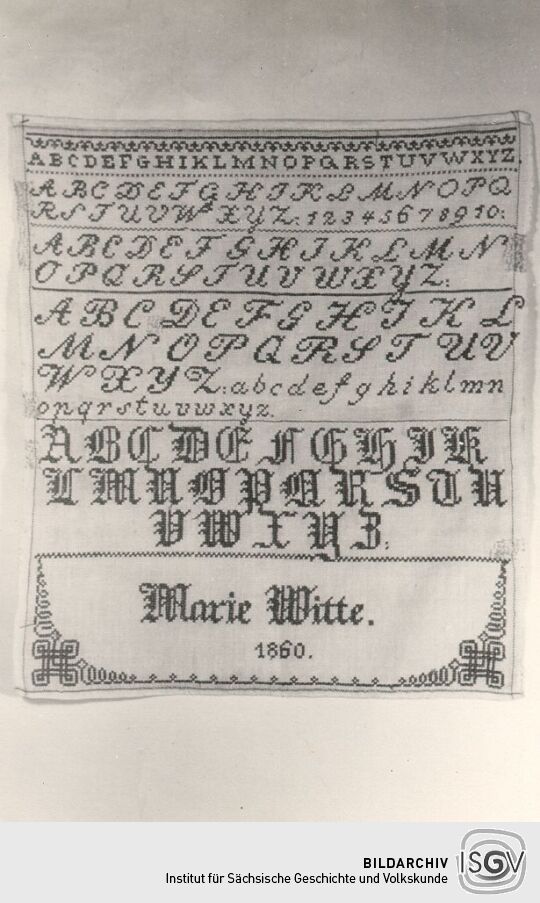 ABCDEFGHIKLMNOPQRSTUVWXYZ.
ABCDEFGHIKLMNOPQ
RSTUVWXYZ: 12345678910:
ABCDEFGHIKLMN
OPQRSTUVWXYZ:
ABCDEFGHIKL
MNOPQRSTUV
WXYZ: abcdefghiklmn
opqrstuvwxyz.
ABCDEFGHIK
LMNOPQRSTU
VWXYZ:
Marie Witte.
1860.
BILDARCHIV
Institut für Sächsische Geschichte und Volkskunde
ISGV